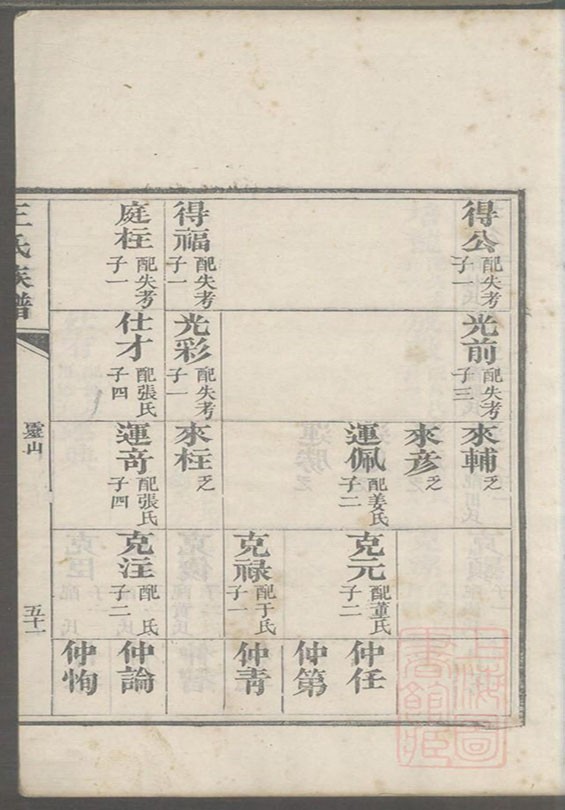 得公 配失考 子一
得福 配失考 子一
庭柱 配失考 子一
光前 配失考 子三
光彩 配失考 子一
仕才 配張氏 子四
來輔 乏
來彦 乏
運佩 配姜氏 子二
來柱 乏
運奇 配張氏 子四
克元 配董氏 子二
克禄 配于氏 子一
克注 配 氏 子二
仲任
仲第
仲青
仲論
仲恂
王氏族譜
靈山
五十一
上海圖書館藏